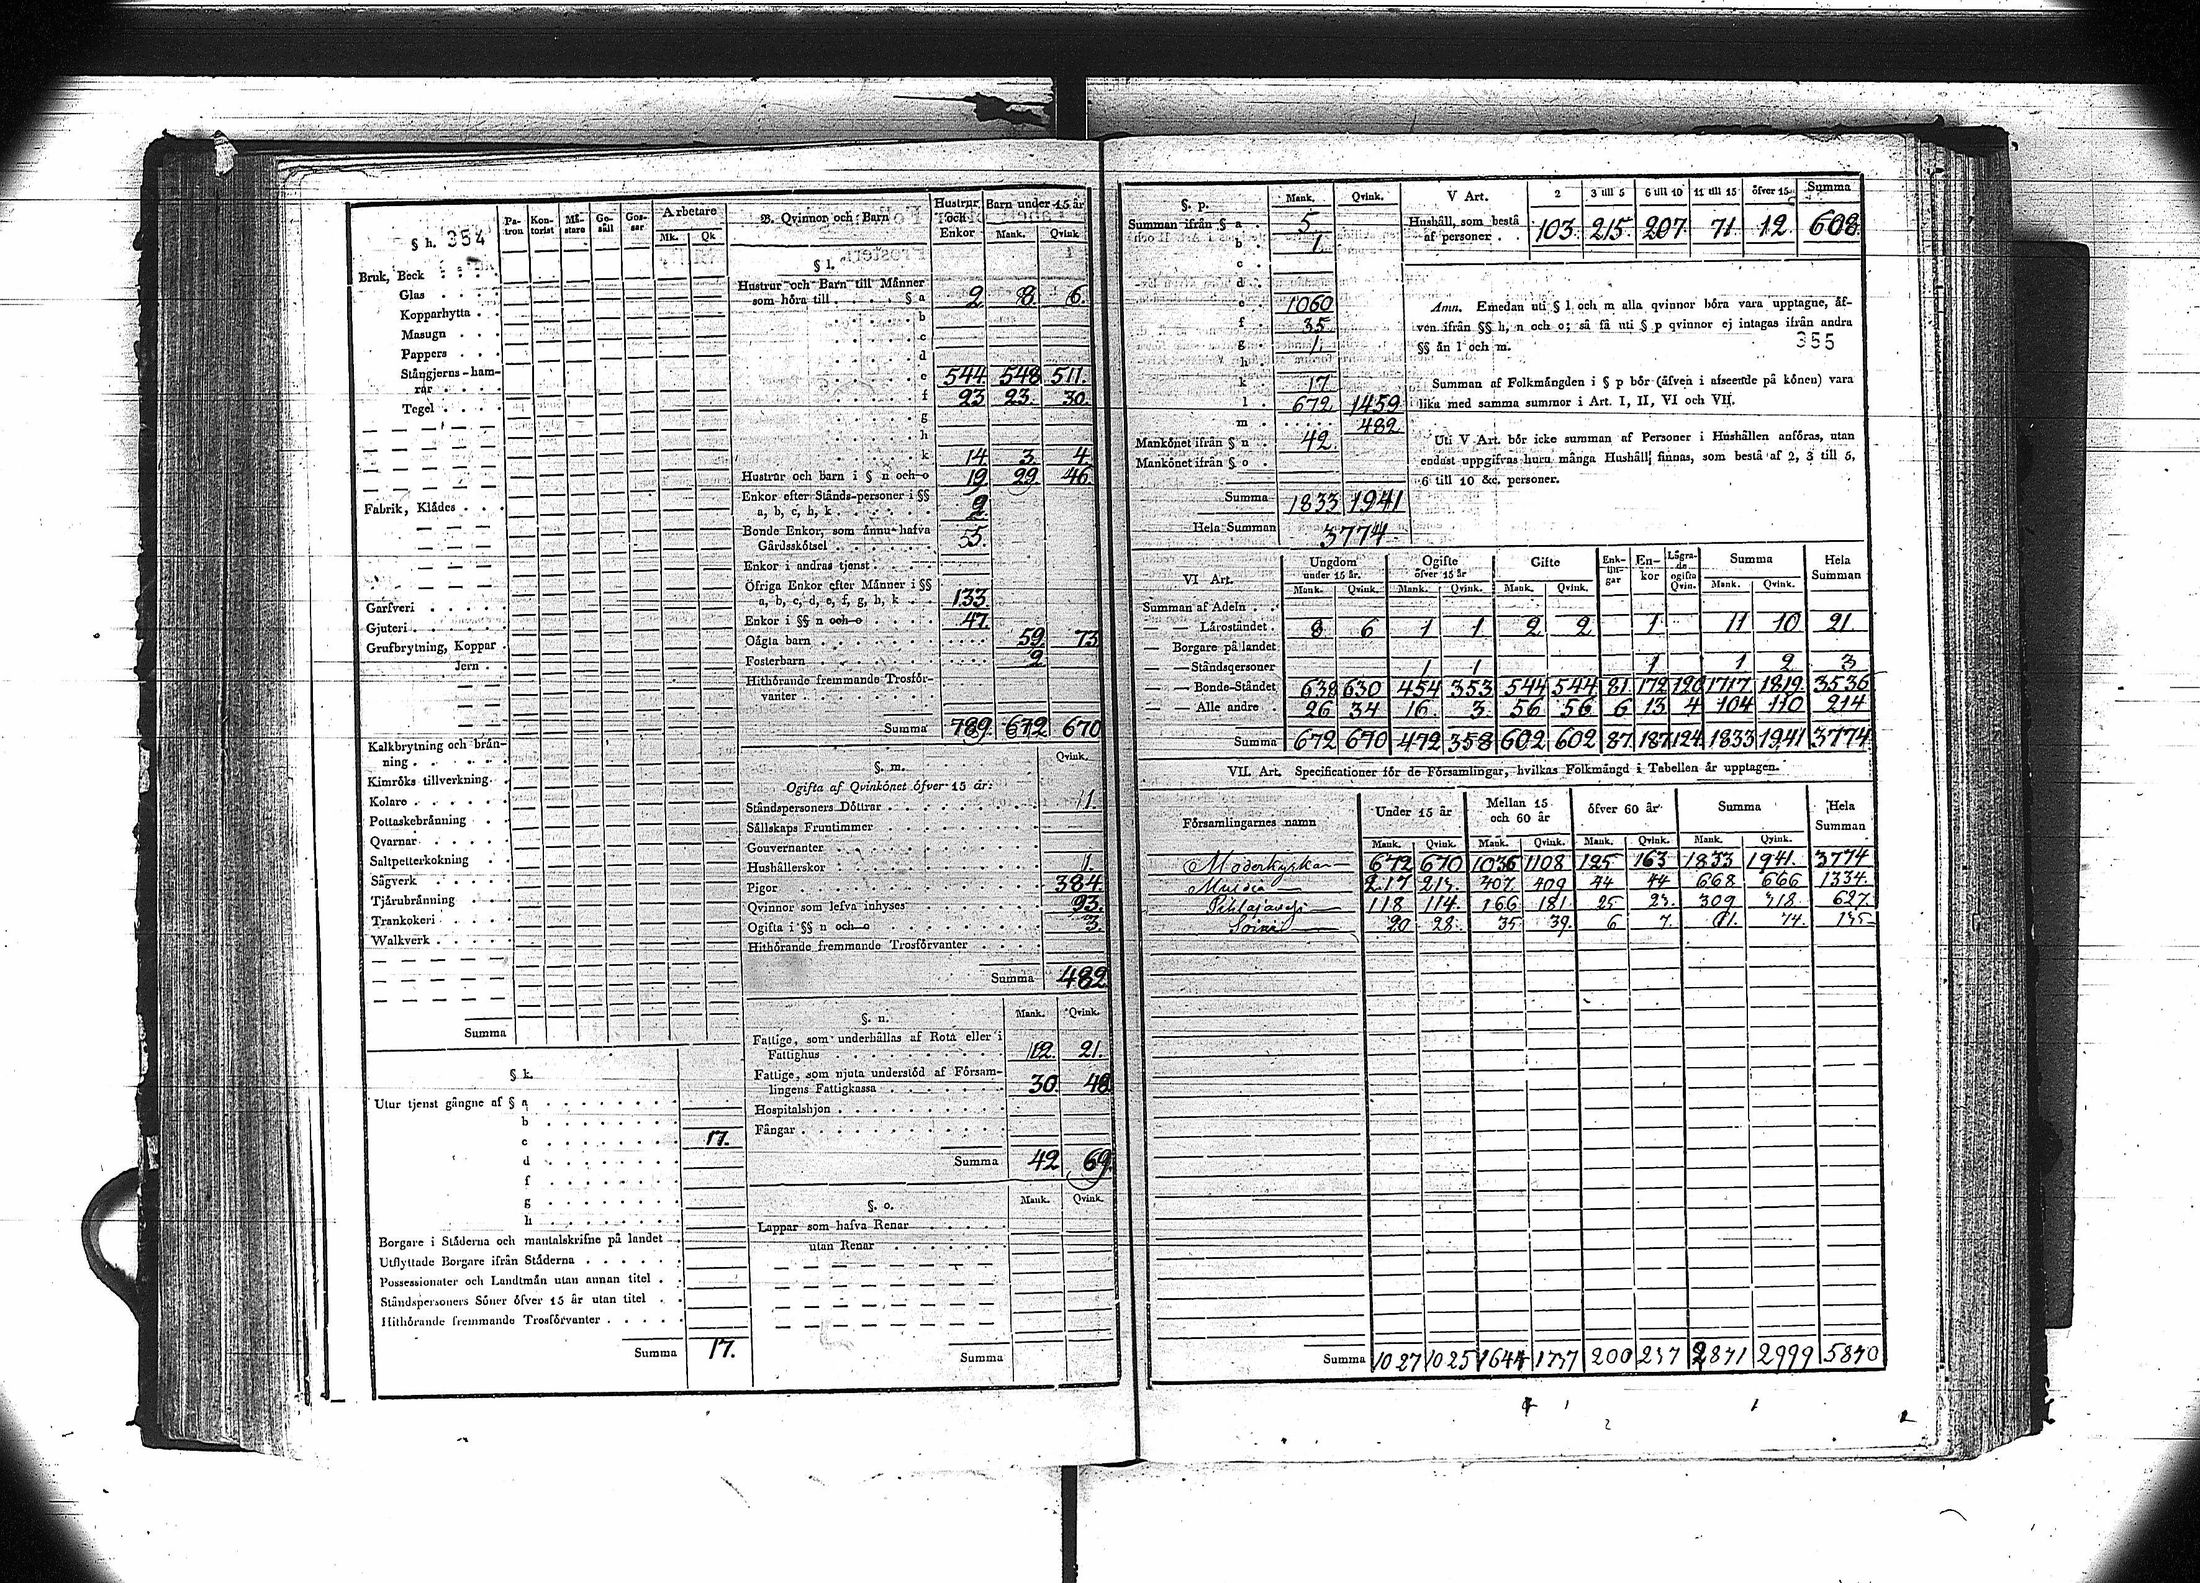 § h. 354
Pa-tron Kon-torist Mä-stare Ge-säll Gos-sar Arbetare
Mk. Qk
Bruk, Beck
Glas
Kopparhytta
Masugn
Pappers
Stångjerns-ham-
rar
Tegel
Fabrik, Klädes
Garfveri
Gjuteri
Grufbrytning, Koppar
Jern
Kalkbrytning och brän-
ning
Kimröks tillverkning
Kolare
Pottaskebränning
Qvarnar
Saltpetterkokning
Sågverk
Tjärubränning
Trankokeri
Walkverk
Summa
§ k.
Utur tjenst gångne af § a
b
c 17.
d
f
g
h
Borgare i Städerna och mantalskrifne på landet
Utflyttade Borgare ifrån Städerna
Possessionater och Landtmän utan annan titel
Ståndspersoners Söner öfver 15 år utan titel
Hithörande fremmande Trosförvanter
Summa 17.
B. Qvinnor och Barn Hustrur och Enkor Barn under 15 år
Mank. Qvink
§ l.
Hustrur och Barn till Männer
som höra till § a 2 8 6
b
c
d
e 544 548 511.
f 23 23 30
g
h
k 14 3 4
Hustrur och barn i § n och o 19 29 46
Enkor efter Stånds-personer i §§
a, b, c, h, k 2
Bonde Enkor, som ännu hafva
Gårdsskötsel 53.
Enkor i andras tjenst
Öfriga Enkor efter Männer i §§
a, b, c, d, e, f, g, h, k 133
Enkor i §§ n och o 47
Oägta barn 59 73
Fosterbarn 2
Hithörande fremmande Trosför-
vanter
Summa 789. 672 670
§. m. Qvink.
Ogifta af Qvinkönet öfver 15 år:
Ståndspersoners Döttrar 1.
Sällskaps Fruntimmer
Gouvernanter
Hushållerskor 1.
Pigor 384
Qvinnor som lefva inhyses 93.
Ogifta i §§ n och o 3
Hithörande fremmande Trosförvanter
Summa 482
§. n. Mank. Qvink.
Fattige, som underhållas af Rota eller i
Fattighus 12. 21.
Fattige, som njuta understöd af Församlingens Fattigkassa 30. 48
Hospitalshjon
Fångar
Summa 42 69.
§. o. Mank. Qvink.
Lappar som hafva Renar
utan Renar
Summa
§. p. Mank. Qvink.
Summan ifrån § a 5
b 1.
c
d
e 1060
f 35
g 1.
h
k 17
l 672 1459
m 482
Mankönet ifrån § n 42.
Mankönet ifrån § o
Summa 1833 1941
Hela Summan 3774
V Art. 2 3 till 5 6 till 10 11 till 15 öfver 15 Summa
Hushåll, som bestå
af personer 103 215 207 71 12 608
Anm. Emedan uti § l och m alla qvinnor böra vara upptagne, äf-
ven ifrån §§ h, n och o; så få uti § p qvinnor ej intagas ifrån andra
§§ än l och m. 355
Summan af Folkmängden i § p bör (äfven i afseende på könen) vara
lika med samma summor i Art. I, II, VI och VII.
Uti V Art. bör icke summan af Personer i Hushållen anföras, utan
endast uppgifvas huru många Hushåll finnas, som bestå af 2, 3 till 5,
6 till 10 &c. personer.
VI Art. Ungdom under 15 år. Ogifte öfver 15 år Gifte Enk-lin-gar En-kor Lägra-de ogifta Qvin. Summa Hela Summan
Mank. Qvink. Mank. Qvink. Mank. Qvink. Mank. Qvink.
Summan af Adeln
— — Läroståndet 8 6 1 1 2 2 1 11 10 21
— Borgare på landet
— — Ståndspersoner 1 1 1 1 2 3
— — Bonde-Ståndet 638 630 454 353 544 544 81 172 120 1717 1819 3536
— — Alle andre 26 34 16 3 56 56 6 13 4 104 110 214
Summa 672 670 472 358 602 602 87 187 124 1833 1941 3774
VII. Art. Specificationer för de Församlingar, hvilkas Folkmängd i Tabellen är upptagen.
Församlingarnes namn Under 15 år Mellan 15 och 60 år öfver 60 år Summa Hela Summan
Mank. Qvink. Mank. Qvink. Mank. Qvink. Mank. Qvink.
Moderkyrkan 672 670 1036 1108 125 163 1833 1941. 3774
217 213. 407 409 44 44 668 666 1334.
Pihlajavesi 118 114. 166 181 25 23. 309 318. 627.
Soini 20 28 35 39. 6 7. 61. 74. 135
Summa 1027 1025 1644 1737 200 237 2871 2999 5870